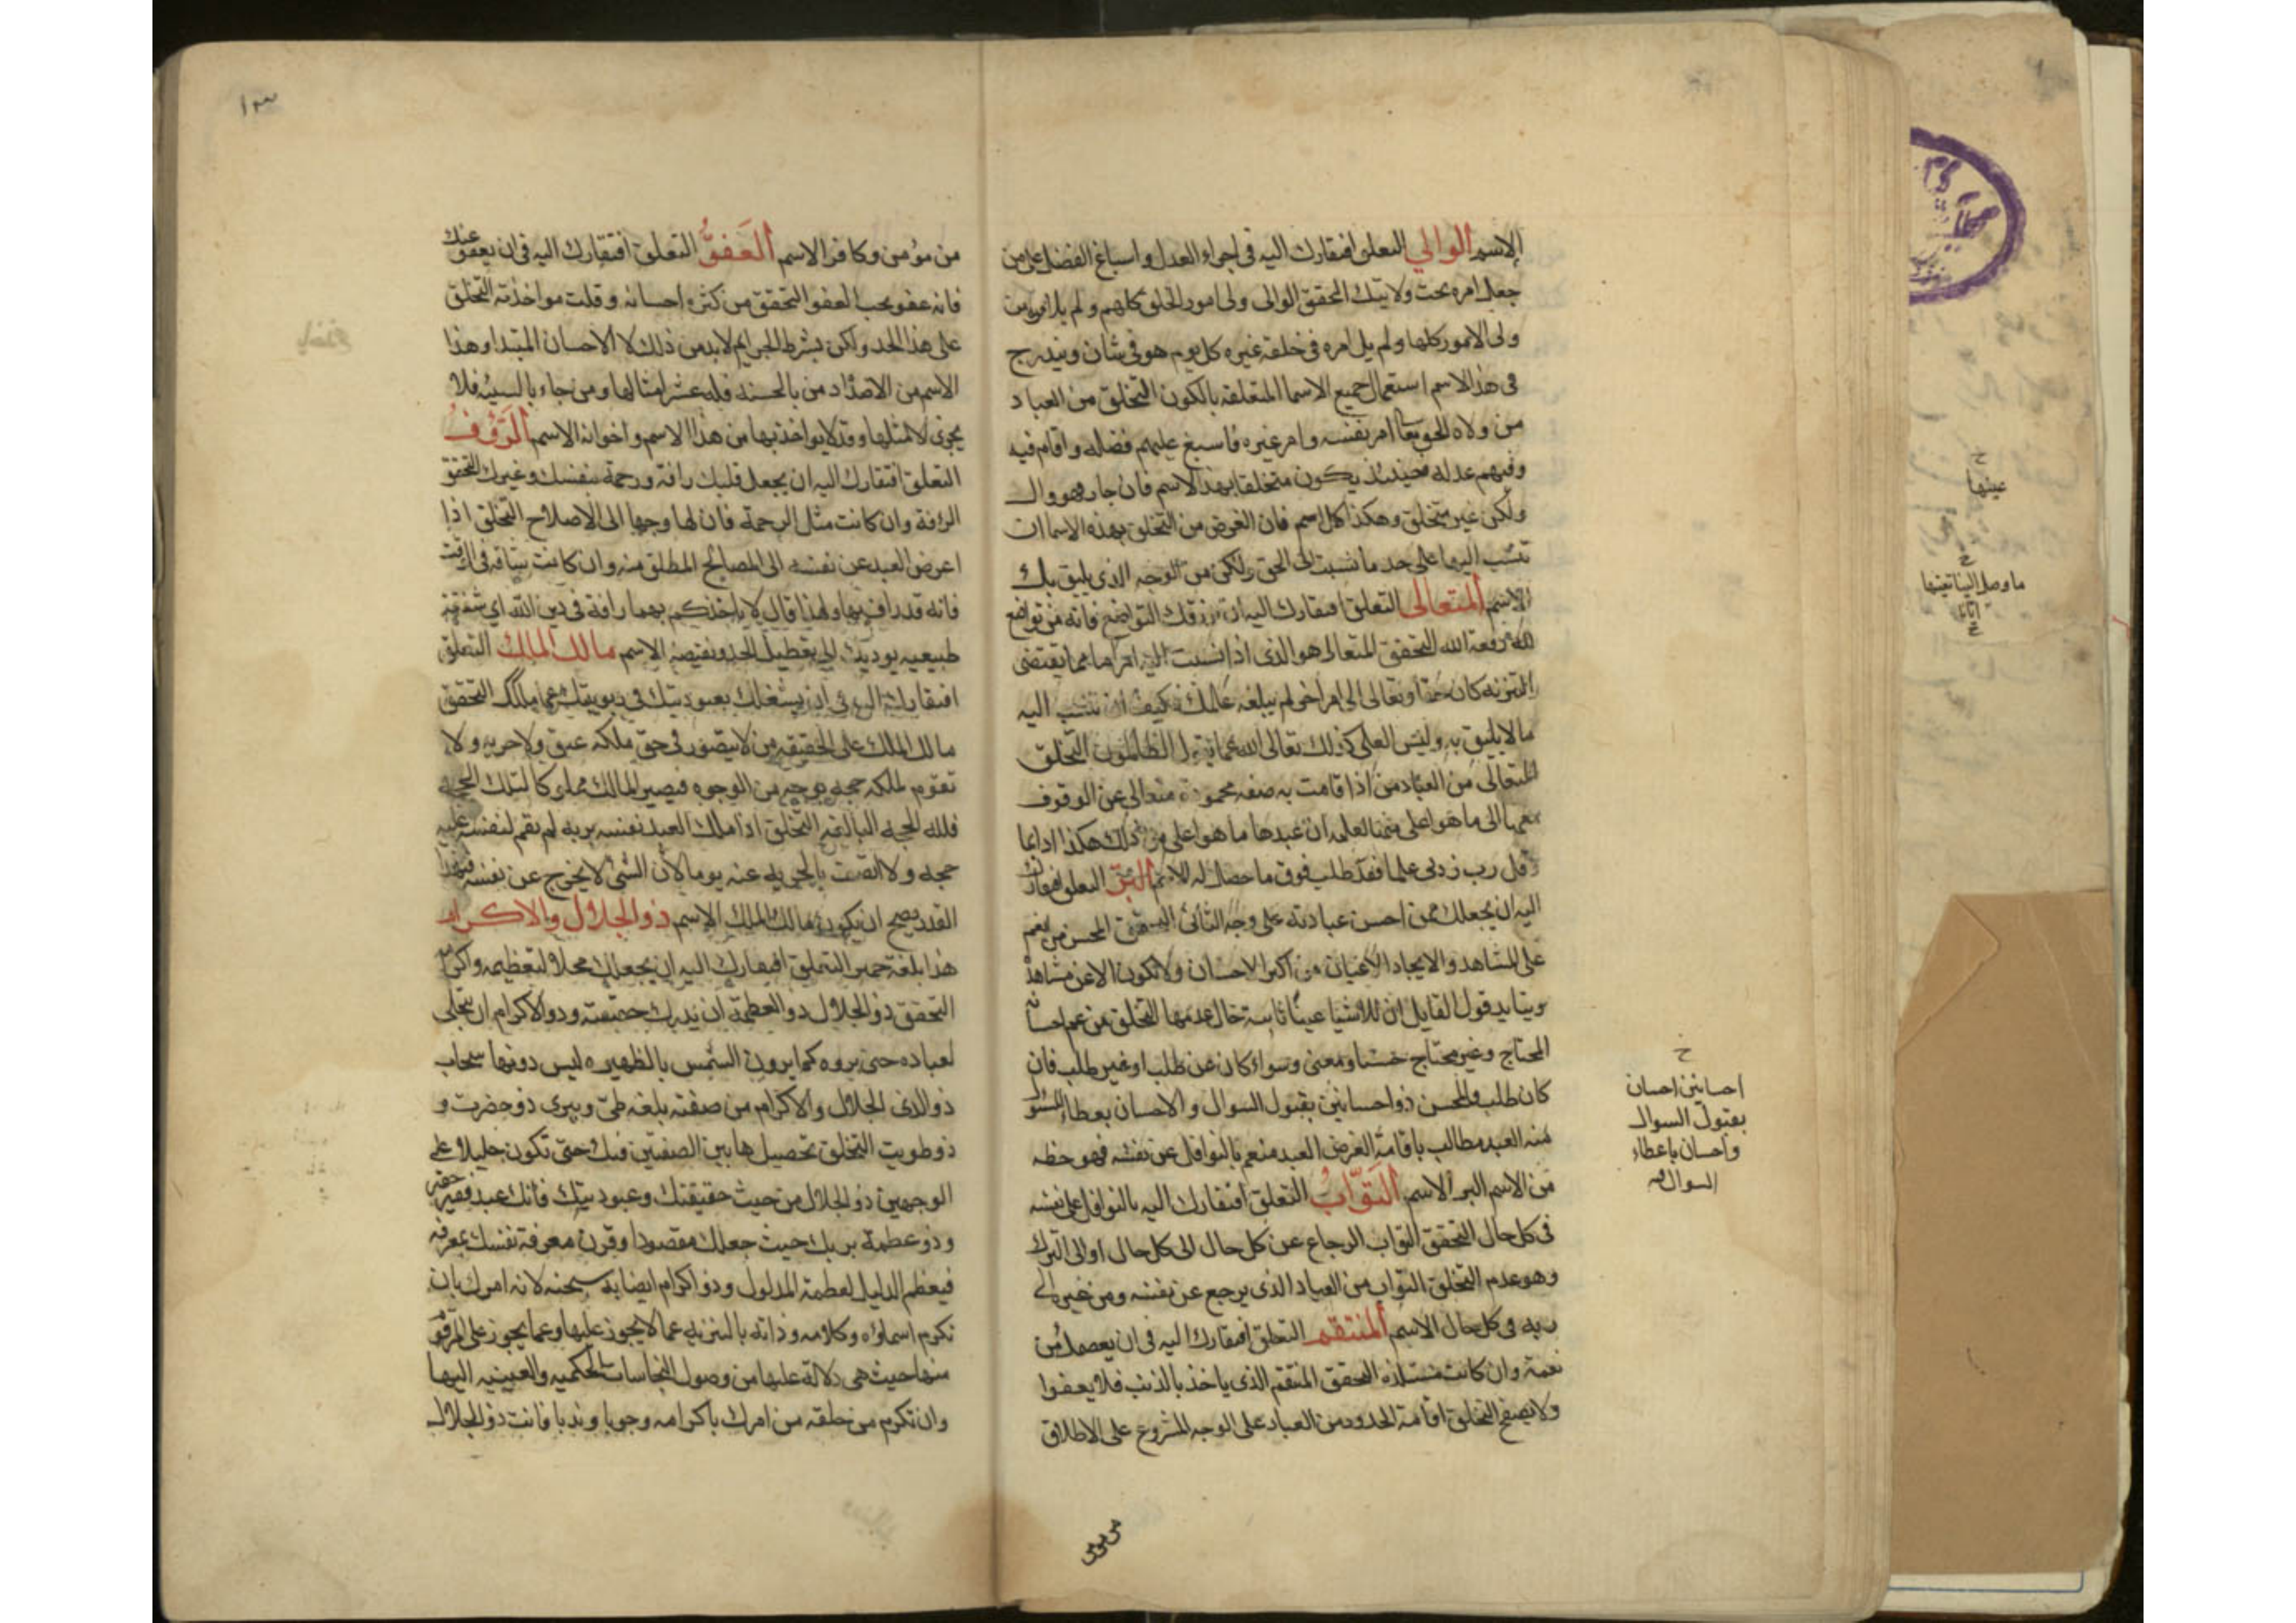 الاسم الوالي التعلق افتقارك اليه فى اجراء العدل واسباغ الفضل على من
جعل امره تحت ولايتك التحقق الوالى ولى امور الخلق كلهم ولم يل امره من
ولى الامور كلها ولم يل امره فى خلقه غيره كل يوم هو فى شان ويندرج
فى هذا الاسم استعمال جميع الاسما المتعلقه بالكون التخلق من العباد
من ولاه الحق تعا امر نفسه وامر غيره فاسبغ عليهم فضله واقام فيه
وفيهم عدله فحينئذ يكون متخلقا بهذا الاسم فان جار فهو وال
ولكن غير متخلق وهكذا كل اسم فان الغرض من التخلق بهذه الاسما ان
تنسب اليها على حد ما نسبت الى الحق ولكن من الوجه الذى يليق بك
الاسم المتعالى التعلق افتقارك اليه ان يرزقك التواضع فانه من تواضع
لله رفعه الله التحقق المتعالى هو الذى اذا نسبت اليه امرا ما مما يقتضى
التنزيه كان حقا وتعالى الى امر اخر لم يبلغه علمك فكيف ان تنسب اليه
ما لا يليق به وليس العلى كذلك تعالى الله عما يقول الظالمون التخلق
المتعالى من العباد من اذا قامت به صفه محمودة متعالى عن الوقوف
معها الى ما هو اعلى منها لعلمه ان عندها ما هو اعلى من ذلك هكذا دايما
وقل رب زدنى علما فقد طلب فوق ما حصل له الاسم البر التعلق افتقارك
اليه ان يجعلك ممن احسن عبادته على وجه التحقق المحسن من انعم
على المشاهد والايجاد الاعيان من اكبر الاحسان ولا تكون الا عن مشاهدة
ويتايد قول القايل ان للاشيا عينا ثابته حال عدمها التخلق من عم احسانه
المحتاج وغير محتاج حسا ومعنى وسواء كان عن طلب او غير طلب فان
كان طلب فالمحسن ذو احسانين بقبول السوال والاحسان بعطاء السؤل
منه العبد مطالب باقامة الفرض العبد منعم بالنوافل عن نفسه فهو حظه
من الاسم البر الاسم التَوّابُ التعلق افتقارك اليه بالنوافل على نفسه
فى كل حال التحقق التواب الرجاع عن كل حال الى كل حال او الى الترك
وهو عدم التخلق التواب من العباد الذى يرجع عن نفسه ومن غيره الى
ربه فى كل حال الاسم المنتقم التعلق افتقارك اليه فى ان يعصمك من
نعمة وان كانت مستلذه التحقق المنتقم الذى ياخذ بالذنب فلا يعفوا
ولا يصفح التخلق اقامة الحدود من العباد على الوجه المشروع على الاطلاق
احسانين احسان
بقبول السوال
واحسان باعطاء
السوال صح
عينها
ما وصل الينا تعينها
من مؤمن وكافر الاسم العَفوُّ التعلق افتقارك اليه فى ان يعفو عنك
فانه عفو يحب العفو التحقق من كثر احسانه وقلت مواخذته التخلق
على هذا الحد ولكن بشرط الجرايم لابد من ذلك لا الاحسان المبتدا وهذا
الاسم من الاضداد من بالحسنه فله عشر امثالها ومن جاء بالسيئه فلا
يجزى الا مثلها وقد لا يواخذ بها من هذا الاسم واخوانه الاسم الرَؤف
التعلق افتقارك اليه ان يجعل قلبك رافة ورحمة بنفسك وغيرك التحقق
الرافة وان كانت مثل الرحمة فان لها وجها الى الاصلاح التخلق اذا
اعرض العبد عن نفسه الى المصالح المطلق منه وان كانت شاقه فى الوقت
فانه قد راف بها ولهذا قال لا ياخذكم بهما رافة فى دين الله اى شفقة
طبيعيه يوديك الى تعطيل الحد ونقيصه الاسم مالك الملك التعلق
افتقارك اليه فى ان يشغلك بعبوديتك فى ربوبيتك عما ملكك التحقق
مالك الملك على الحقيقه من لا يتصور فى حق ملكه عتق ولا حريه ولا
تقوم لملكه حجه بوجه من الوجوه فيصير المالك مملوكا لتلك الحجه
فلله الحجه البالغه التخلق اذا ملك العبد نفسه بربه لم يقم لنفسه عليه
حجه ولا اتصفت بالحريه عنه يوما لأن الشئ لا يخرج عن نفسه فبهذا
القدر يصح ان يكون مالك الملك الاسم ذو الجلال والاكرام
هذا بلغة حمير التعلق افتقارك اليه ان يجعلك محلا لتعظيمه واكرامه
التحقق ذو الجلال ذو العظمة ان يدرك حقيقته وذو الاكرام ان يتجلى
لعباده حتى يروه كما يرون الشمس بالظهيره ليس دونها سحاب
ذو الذى الجلال والاكرام من صفته بلغه طى ويروى ذو حضرت و
ذو طويت التخلق تحصيل هاتين الصفتين فيك حتى تكون جليلا على
الوجهين ذو الجلال من حيث حقيقتك وعبوديتك فانك عبد فقير حقير
وذو عظمة بربك حيث جعلك مقصودا وقرن معرفة نفسك بمعرفته
فيعظم الدليل لعظمة المدلول وذو اكرام ايضا به سبحنه لانه امرك بان
تكرم اسماؤه وكلامه وذاته بالتنزيه عما لا يجوز عليها وعما يجوز على المرقوم
منها حيث هى دلالة عليها من وصول النجاسات الحكميه والعينيه اليها
وان تكرم من خلقه من امرك باكرامه وجوبا وندبا فانت ذو الجلال